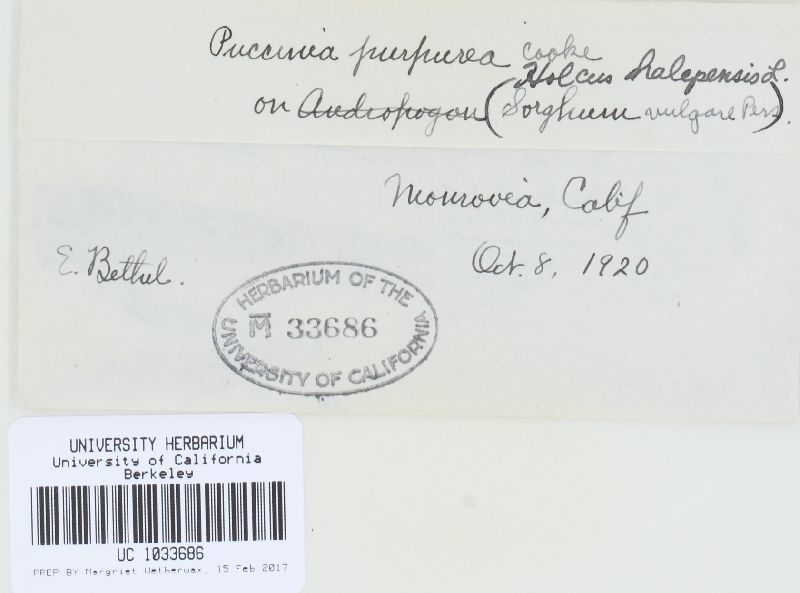 Puccinia purpurea Cooke
Holcus halepensis L.
on Andropogon (Sorghum vulgare Pers).
Monrovia, Calif
E. Bethel.
Oct. 8, 1920
HERBARIUM OF THE
M 33686
UNIVERSITY OF CALIFORNIA
UNIVERSITY HERBARIUM
University of California
Berkeley
UC 1033686
PREP BY Margriet Wetherwax, 15 Feb 2017